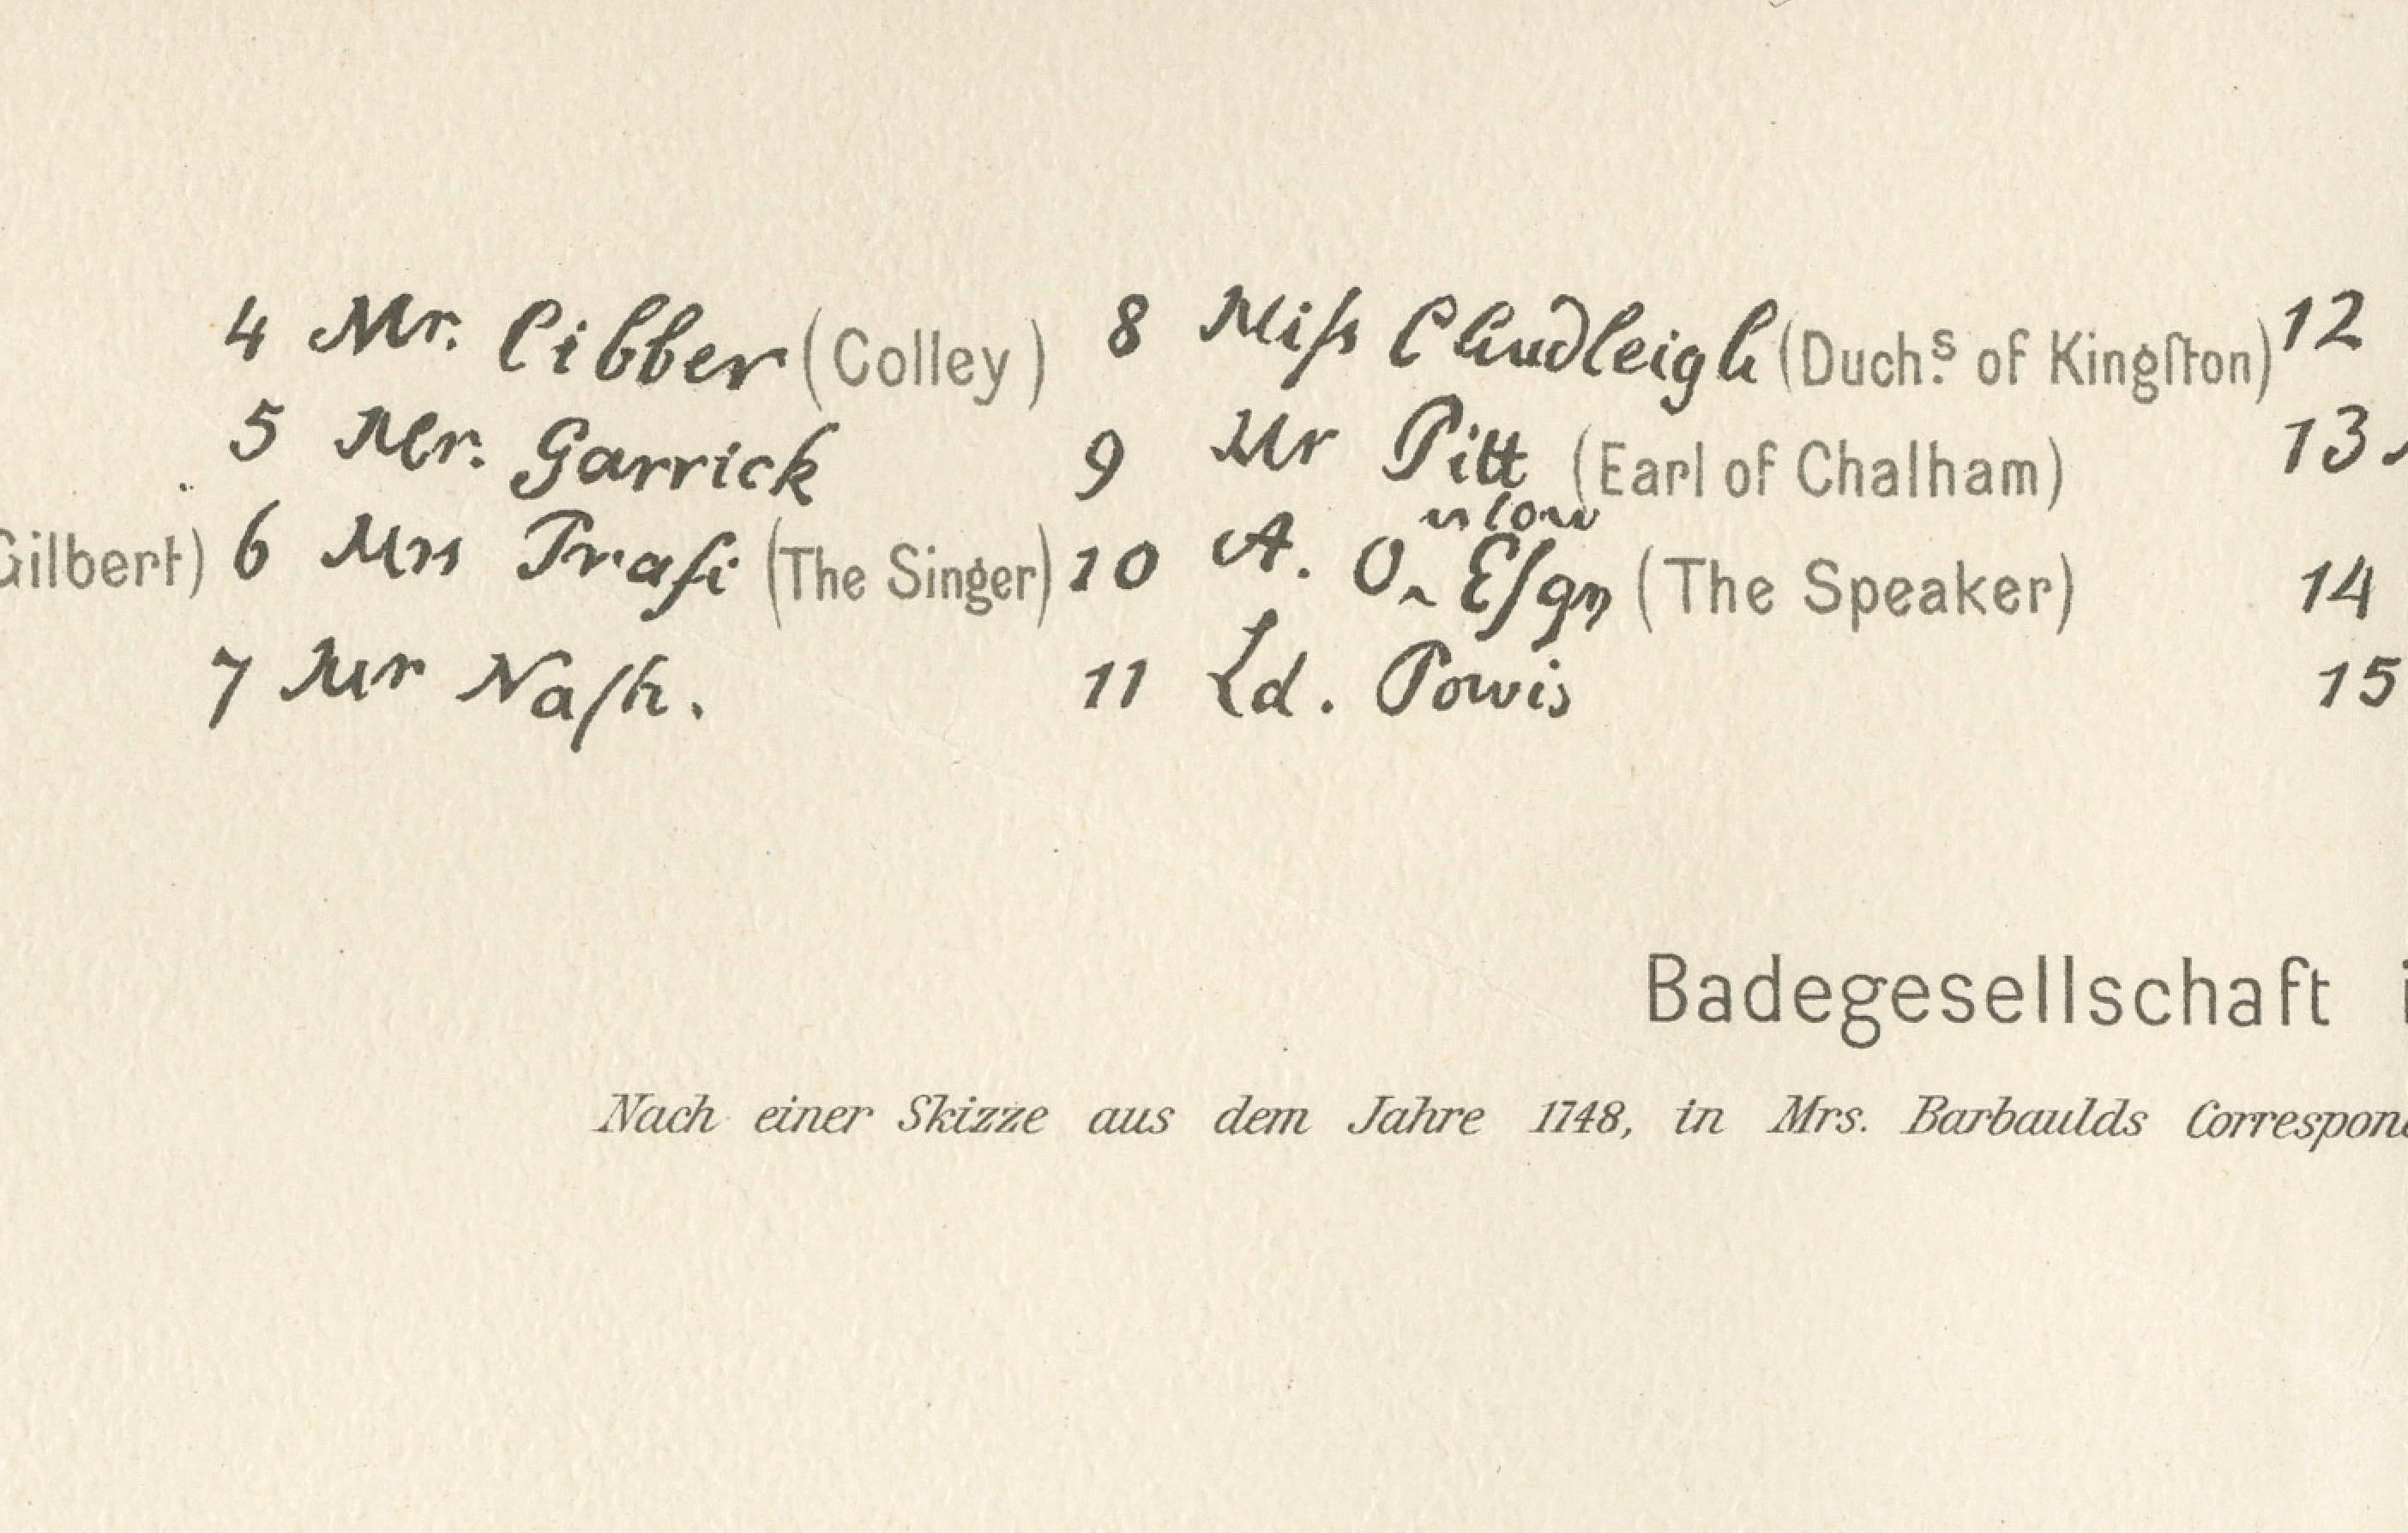 4 Mr. Cibber (Colley) 8 Miſs Chudleigh (Duch.s of Kingſton) 12
5 Mr. Garrick 9 Mr Pitt (Earl of Chalham) 13
Gilbert) 6 Mrs Fraſi (The Singer) 10 A. Onslow Eſqr (The Speaker) 14
7 Mr Naſh. 11 Ld. Powis 15
Badegesellschaft
Nach einer Skizze aus dem Jahre 1748, in Mrs. Barbaulds